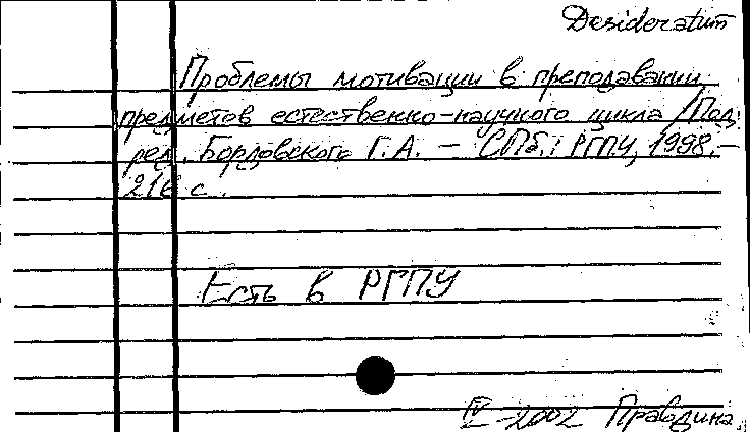 Desideratum
Проблемы мотивации в преподавании
предметов естественно-научного цикла / Под
ред. Бордовского Г.А. – СПб.: РГПУ, 1998. –
216 с.
Есть в РГПУ
IV-2002 Правдина